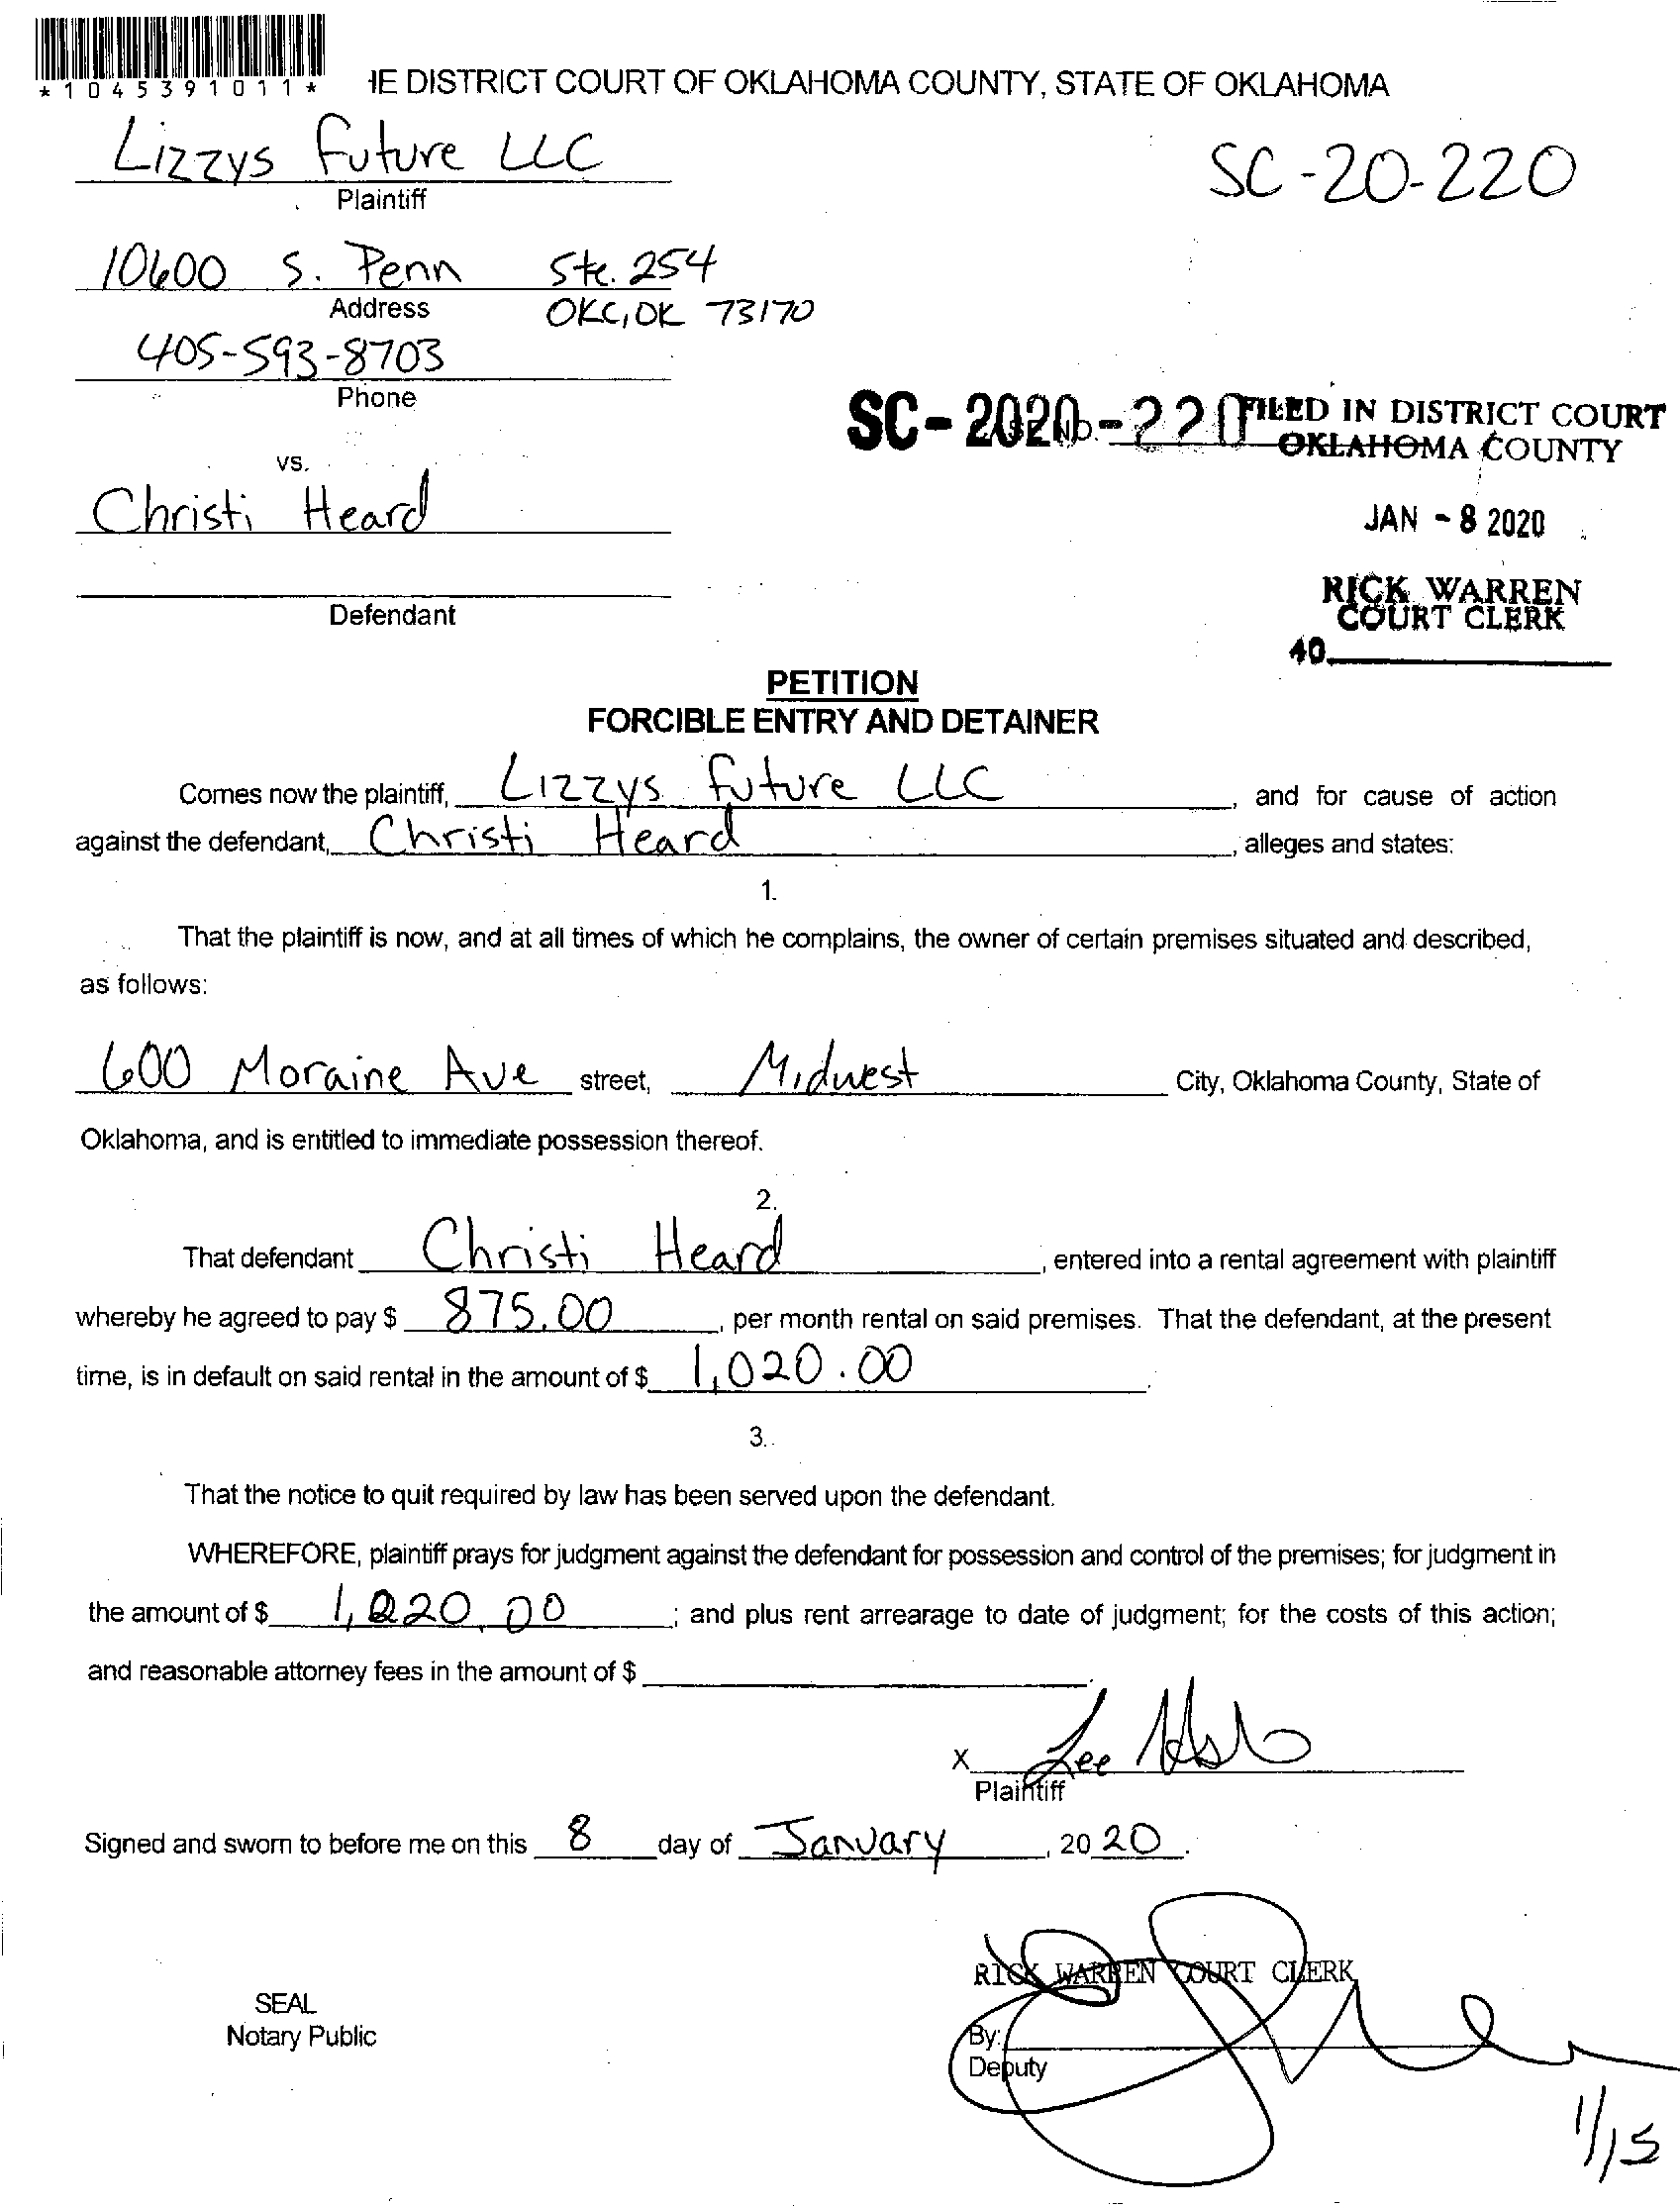 *1045391011*
IE DISTRICT COURT OF OKLAHOMA COUNTY, STATE OF OKLAHOMA
Lizzys Future LLC
Plaintiff
SC-20-220
10600 S. Penn Ste. 254
Address
OKC, OK 73170
405-593-8703
Phone
SC-2020-220
FILED IN DISTRICT COURT
OKLAHOMA COUNTY
vs.
Christi Heard
JAN - 8 2020
Defendant
RICK WARREN
COURT CLERK
40
PETITION
FORCIBLE ENTRY AND DETAINER
Comes now the plaintiff, Lizzys Future LLC, and for cause of action
against the defendant, Christi Heard, alleges and states:
1.
That the plaintiff is now, and at all times of which he complains, the owner of certain premises situated and described,
as follows:
600 Moraine Ave street, Midwest City, Oklahoma County, State of
Oklahoma, and is entitled to immediate possession thereof.
2.
That defendant Christi Heard, entered into a rental agreement with plaintiff
whereby he agreed to pay $ 875.00, per month rental on said premises. That the defendant, at the present
time, is in default on said rental in the amount of $ 1,020.00.
3.
That the notice to quit required by law has been served upon the defendant.
WHEREFORE, plaintiff prays for judgment against the defendant for possession and control of the premises; for judgment in
the amount of $ 1,020.00; and plus rent arrearage to date of judgment; for the costs of this action;
and reasonable attorney fees in the amount of $ .
X Lee
Plaintiff
Signed and sworn to before me on this 8 day of January, 2020.
RICK WARREN COURT CLERK
SEAL
Notary Public
By:
Deputy
1/15